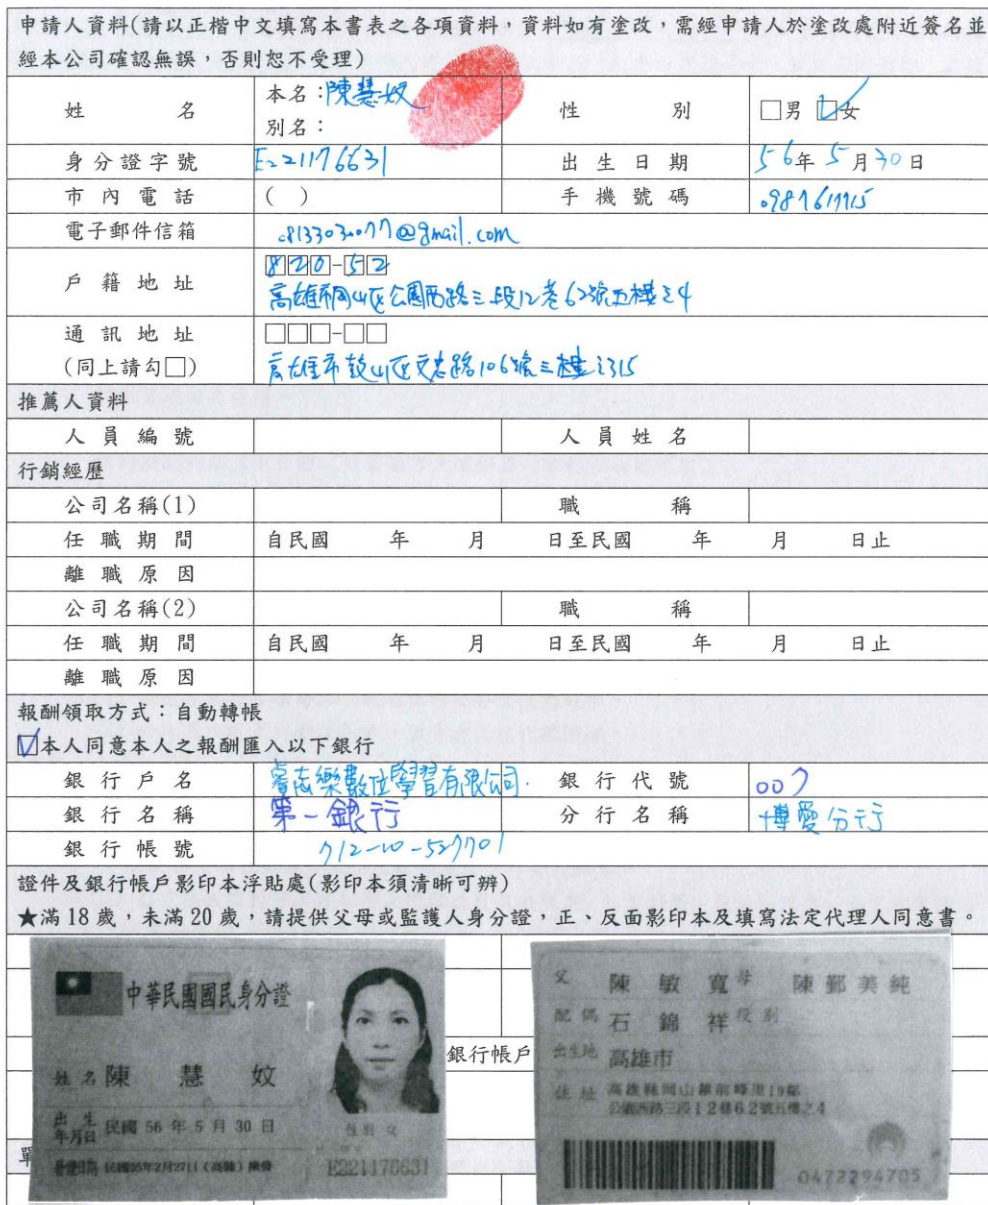 申請人資料(請以正楷中文填寫本書表之各項資料，資料如有塗改，需經申請人於塗改處附近簽名並
經本公司確認無誤，否則恕不受理)
姓名 本名：陳慧妏 性別 □男 ☑女
別名：
身分證字號 E221176631 出生日期 56年5月30日
市內電話 ( ) 手機號碼
電子郵件信箱 @gmail.com
戶籍地址 820-52
高雄市岡山區公園西路三段12巷62號五樓之4
通訊地址 □□□-□□
(同上請勾□) 高雄市鼓山區文忠路106號三樓之315
推薦人資料
人員編號 人員姓名
行銷經歷
公司名稱(1) 職稱
任職期間 自民國 年 月 日至民國 年 月 日止
離職原因
公司名稱(2) 職稱
任職期間 自民國 年 月 日至民國 年 月 日止
離職原因
報酬領取方式：自動轉帳
☑本人同意本人之報酬匯入以下銀行
銀行戶名 樂數位學習有限公司 銀行代號 007
銀行名稱 第一銀行 分行名稱 博愛分行
銀行帳號 712-10-527701
證件及銀行帳戶影印本浮貼處(影印本須清晰可辨)
★滿18歲，未滿20歲，請提供父母或監護人身分證，正、反面影印本及填寫法定代理人同意書。
中華民國國民身分證
姓名 陳慧妏
出生年月日 民國 56 年 5 月 30 日
性別 女
發證日期 民國95年2月27日(高縣)換發
E221176631
銀行帳戶
父 陳敏寬 母 陳鄞美純
配偶 石錦祥 役別
出生地 高雄市
住址 高雄縣岡山鎮前峰里19鄰
公園西路三段12巷62號五樓之4
0472294705